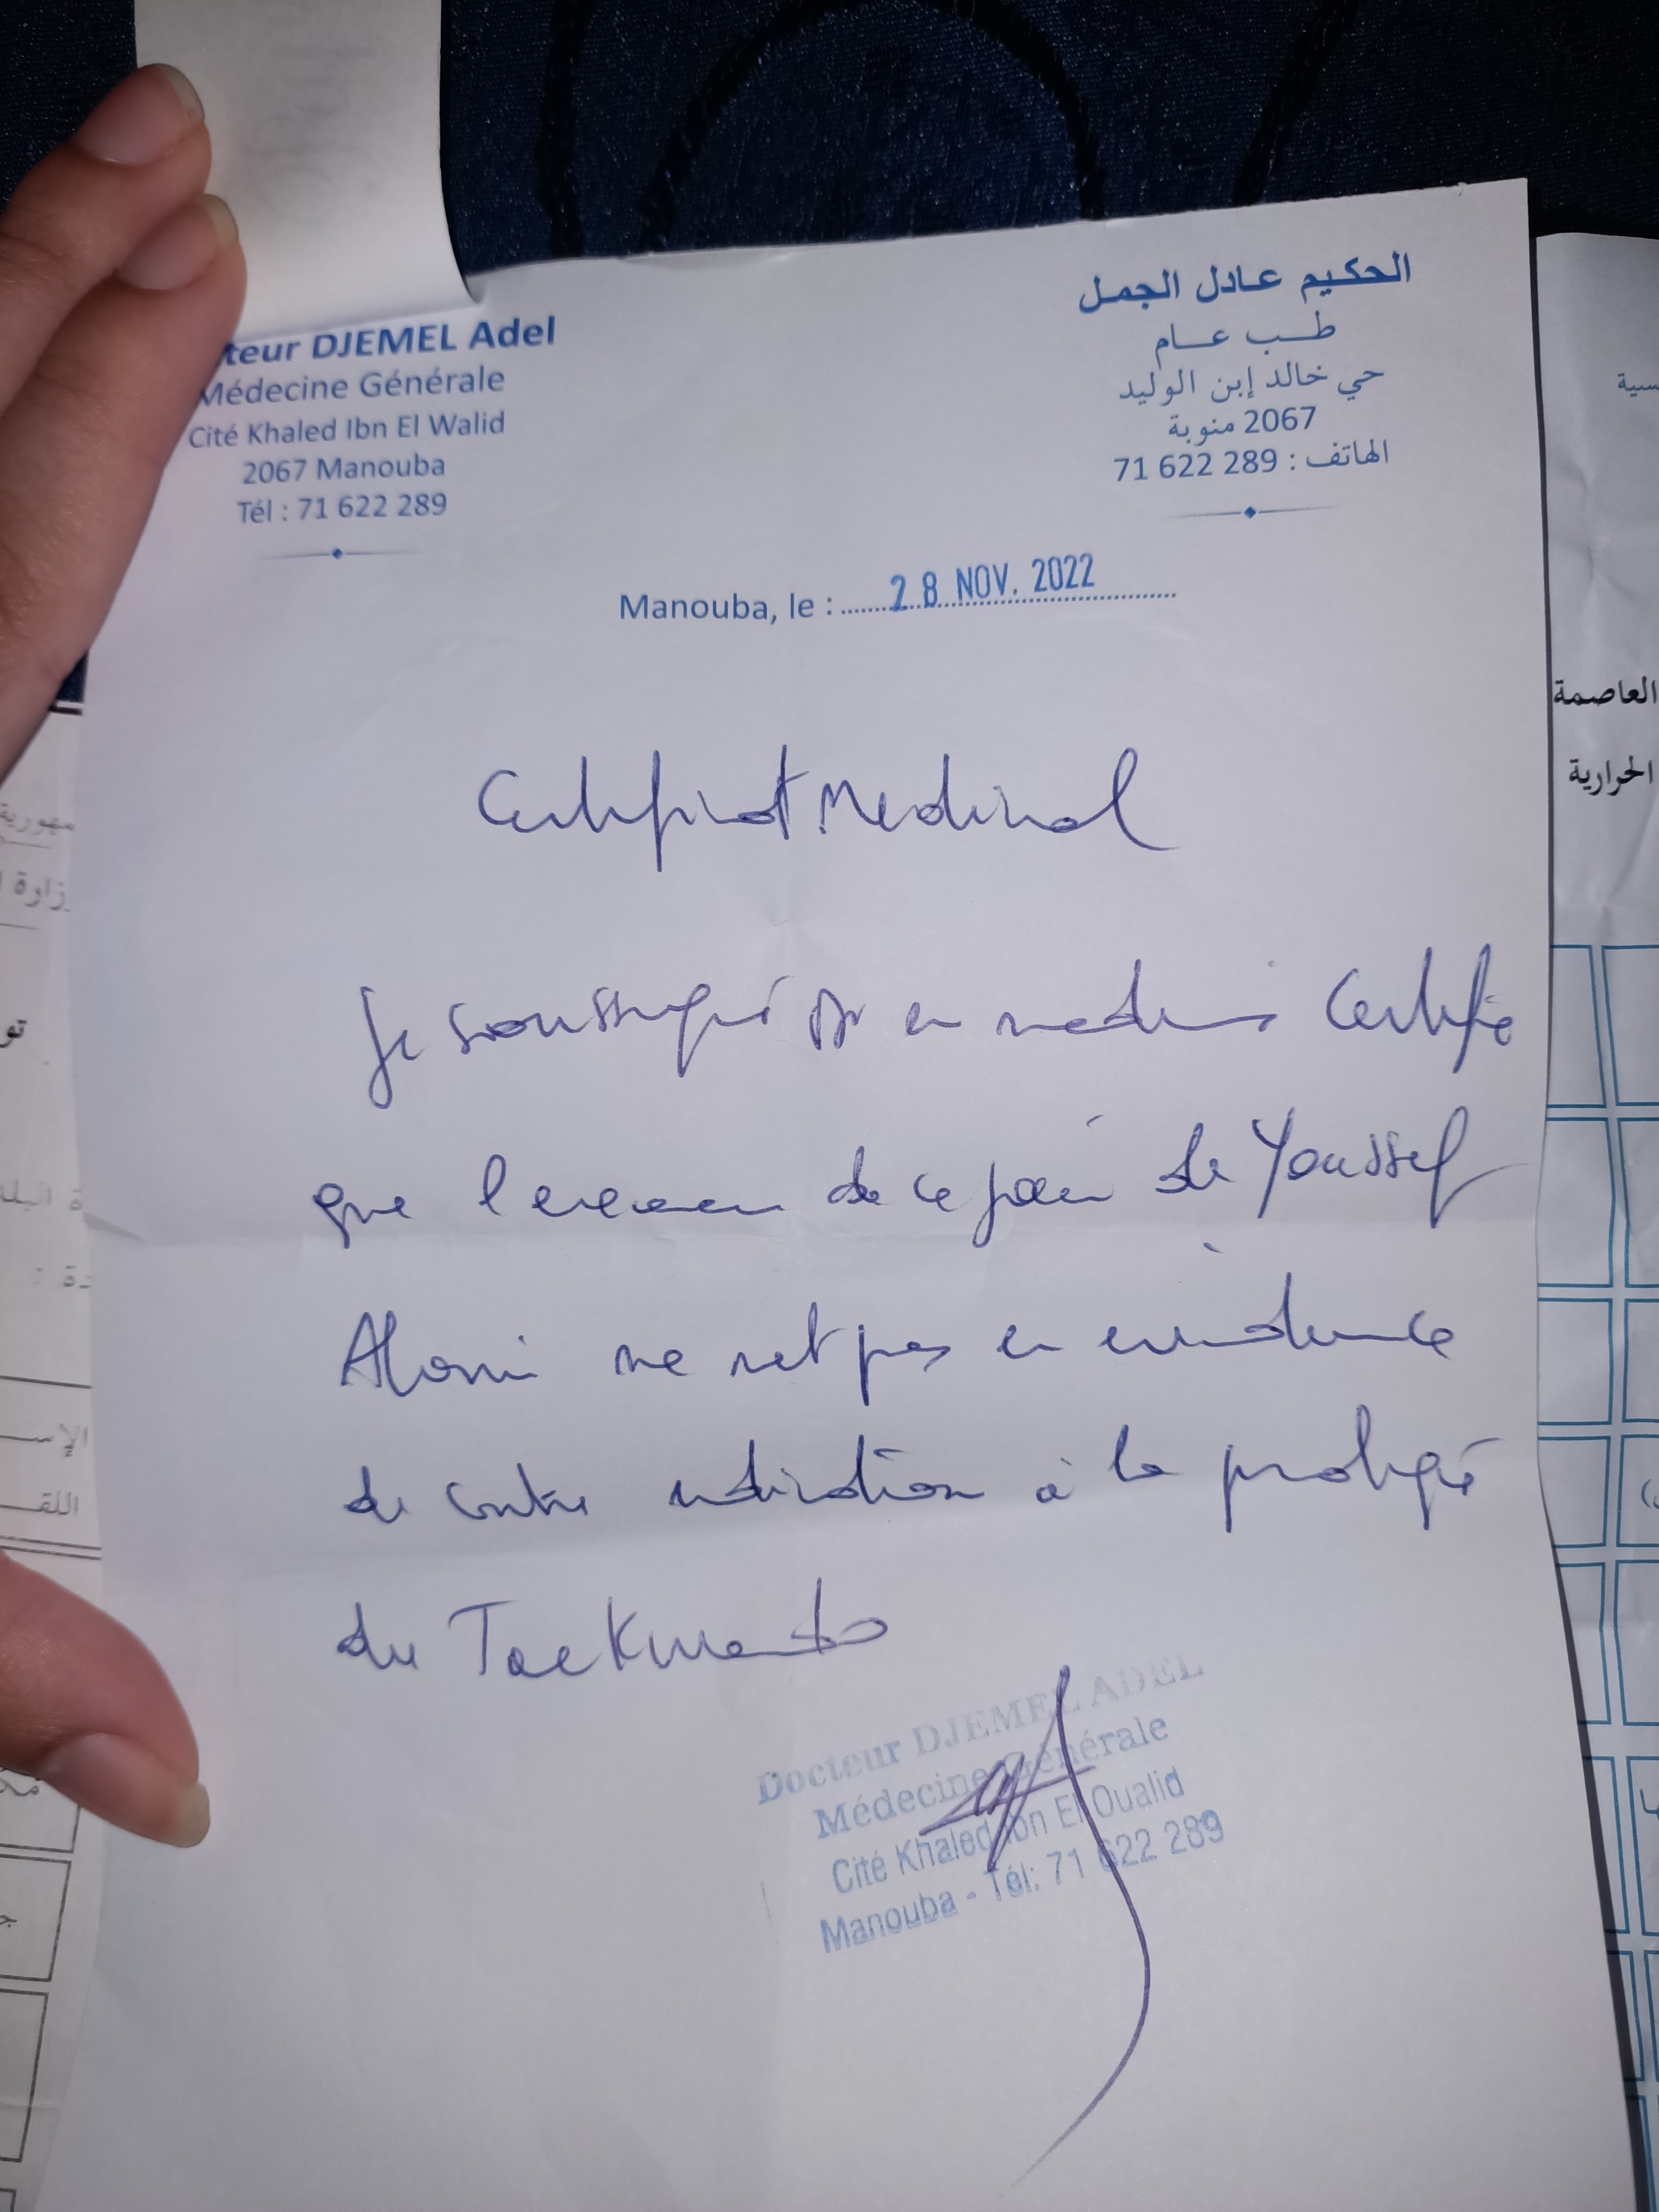 teur DJEMEL Adel
Médecine Générale
Cité Khaled Ibn El Walid
2067 Manouba
Tél : 71 622 289
الحكيم عادل الجمل
طب عام
حي خالد إبن الوليد
2067 منوبة
الهاتف : 71 622 289
Manouba, le : 28 NOV. 2022
Certificat Medical
Je soussigné Dr en medecine Certifie
que l'examen de ce jour de Youssef
ne met pas en evidence
de contre indication à la pratique
du Taekwondo
Docteur DJEMEL ADEL
Médecine Générale
Cité Khaled Ibn El Oualid
Manouba - Tél: 71 622 289
العاصمة
الحرارية